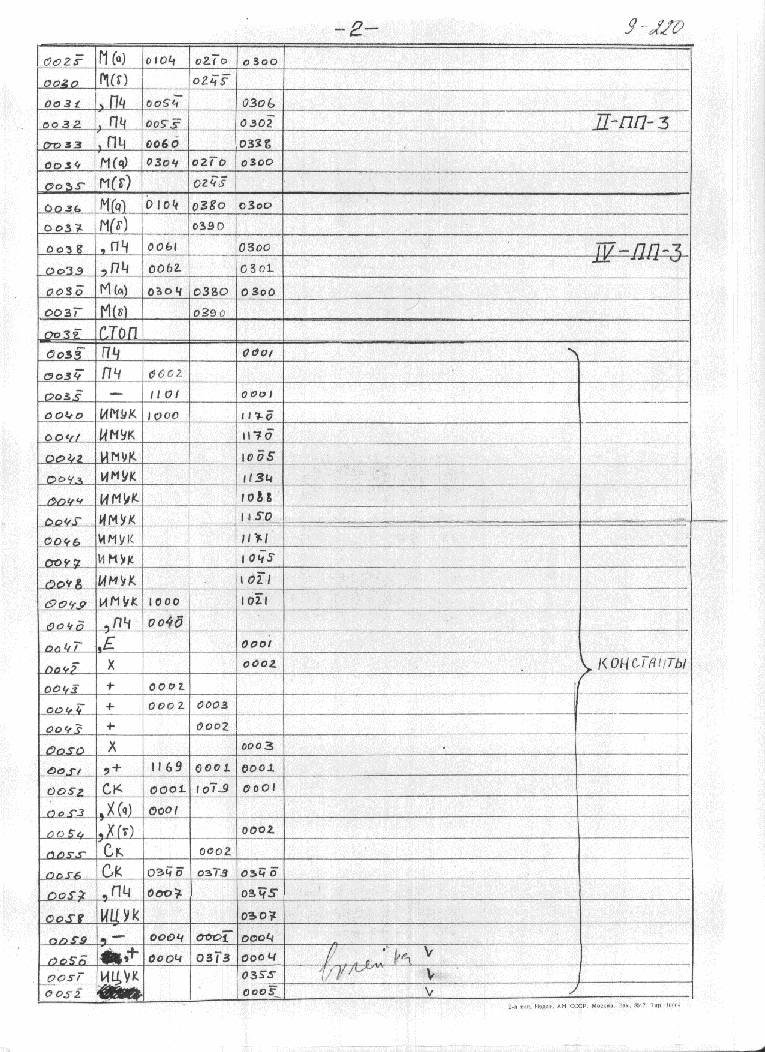 -2-
9-220
0025̄ М(а) 0104 021̄0 0300
0030 М(б) 024̄5̄
0031 ,ПЧ 0054̄ 0306
0032 ,ПЧ 005̄5̄ 0302̄
II-ПП-3
0033 ,ПЧ 0060̄ 0338
0034 М(а) 0304 021̄0 0300
0035 М(б) 024̄5̄
0036 М(а) 0104 0380 0300
0037 М(б) 0390
0038 ,ПЧ 0061 0300
IV-ПП-3
0039 ,ПЧ 0062 0301
0030̄ М(а) 0304 0380 0300
0031̄ М(б) 0390
0032̄ СТОП
0033̄ ПЧ 0001
0034̄ ПЧ 0002
0035̄ — 1101 0001
0040 ИМУК 1000 117̄0̄
0041 ИМУК 117̄0̄
0042 ИМУК 100̄5
0043 ИМУК 1134
0044 ИМУК 1088
0045 ИМУК 1150
0046 ИМУК 1171
0047 ИМУК 104̄5
0048 ИМУК 102̄1
0049 ИМУК 1000 102̄1
0040̄ ,ПЧ 004̄0̄
0041̄ ,Е 0001
0042̄ Х 0002
КОНСТАНТЫ
0043̄ + 0002
0044̄ + 0002 0003
0045̄ + 0002
0050 Х 0003
0051 ,+ 1169 0001 0001
0052 СК 0001 101̄9 0001
0053 ,Х(а) 0001
0054 ,Х(б) 0002
0055 СК 0002
0056 СК 034̄0̄ 031̄3 034̄0̄
0057 ,ПЧ 0007 034̄5
0058 ИЦУК 0307
0059 ,— 0004 0001̄ 0004
0050̄ ,+ 0004 031̄3 0004 V
0051̄ ИЦУК 0355 V
0052̄ 0005̄ V